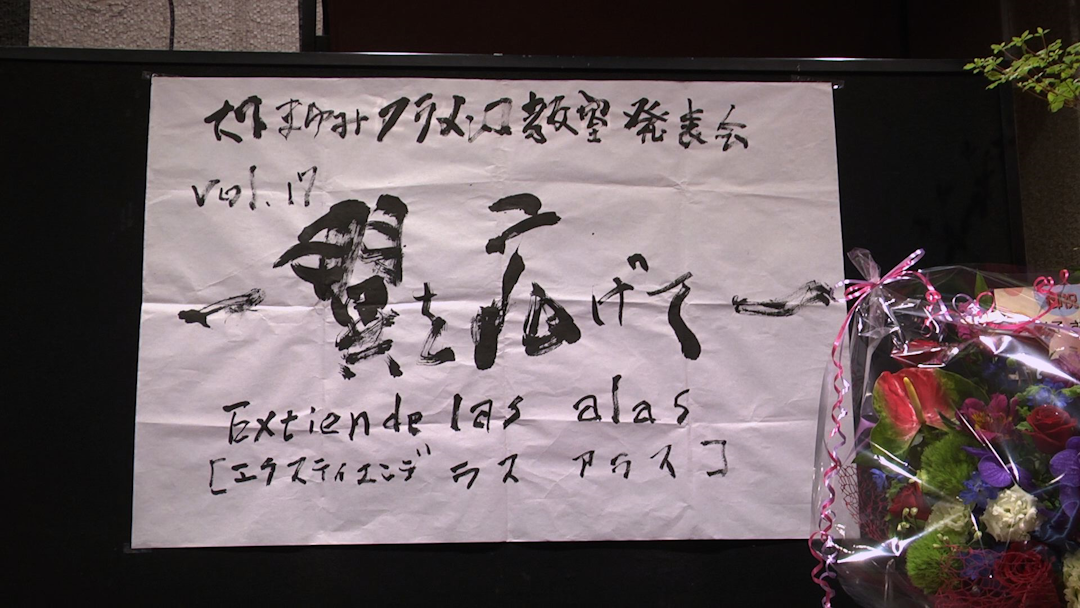 まゆみフラメンコ教室発表会
vol.17
～翼を広げて～
Extiende las alas
[エクスティエンデ ラス アラス]